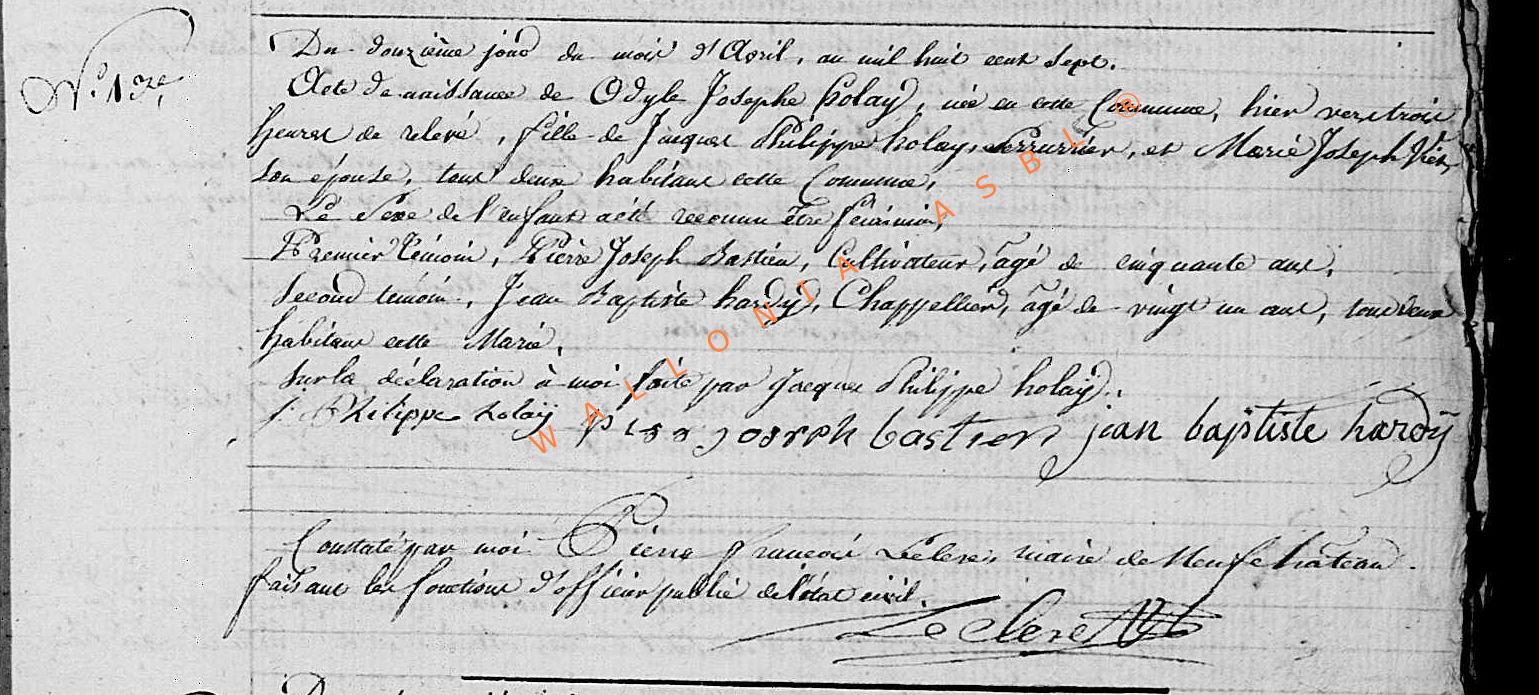 N.° 13.e
Du douzième jour du mois d'Avril, an mil huit cent Sept.
Acte de naissance de Odyle Josephe holay, née en cette Commune, hier vers trois
heures de relevé, fille de Jacques Philippe holay, Serrurrier, et Marie Joseph
son épouse, tous deux habitans cette Commune,
Le Sexe de l'enfant a été reconnu être féminin,
Premier Témoin, Pierre Joseph Bastien, Cultivateur, âgé de cinquante ans,
Second témoin, Jean Baptiste hardÿ, Chappellier, âgé de vingt un ans, tous deux
habitans cette Mairie,
Sur la déclaration à moi faite par Jacques Philippe holaÿ.
j. Philippe holaÿ joseph bastien jean baptiste hardÿ
Constaté par moi Pierre François Leclere, maire de Neufchâteau
faisant les fonctions d'officier public de l'état civil.
Leclere
WALLONIA ASBL ®